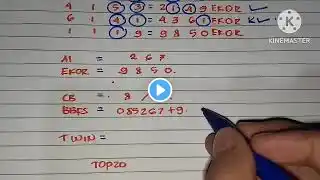 4 1 5 3 = 2 1 4 9 EKOR ✓
6 1 4 1 = 4 3 6 1 EKOR K ✓
1 1 1 9 = 9 8 5 0 EKOR
AI = 2 6 7
EKOR = 9 8 5 0.
CB = 8 /
BBFS = 085267+9.
TWIN =
TOP20
KINEMASTER